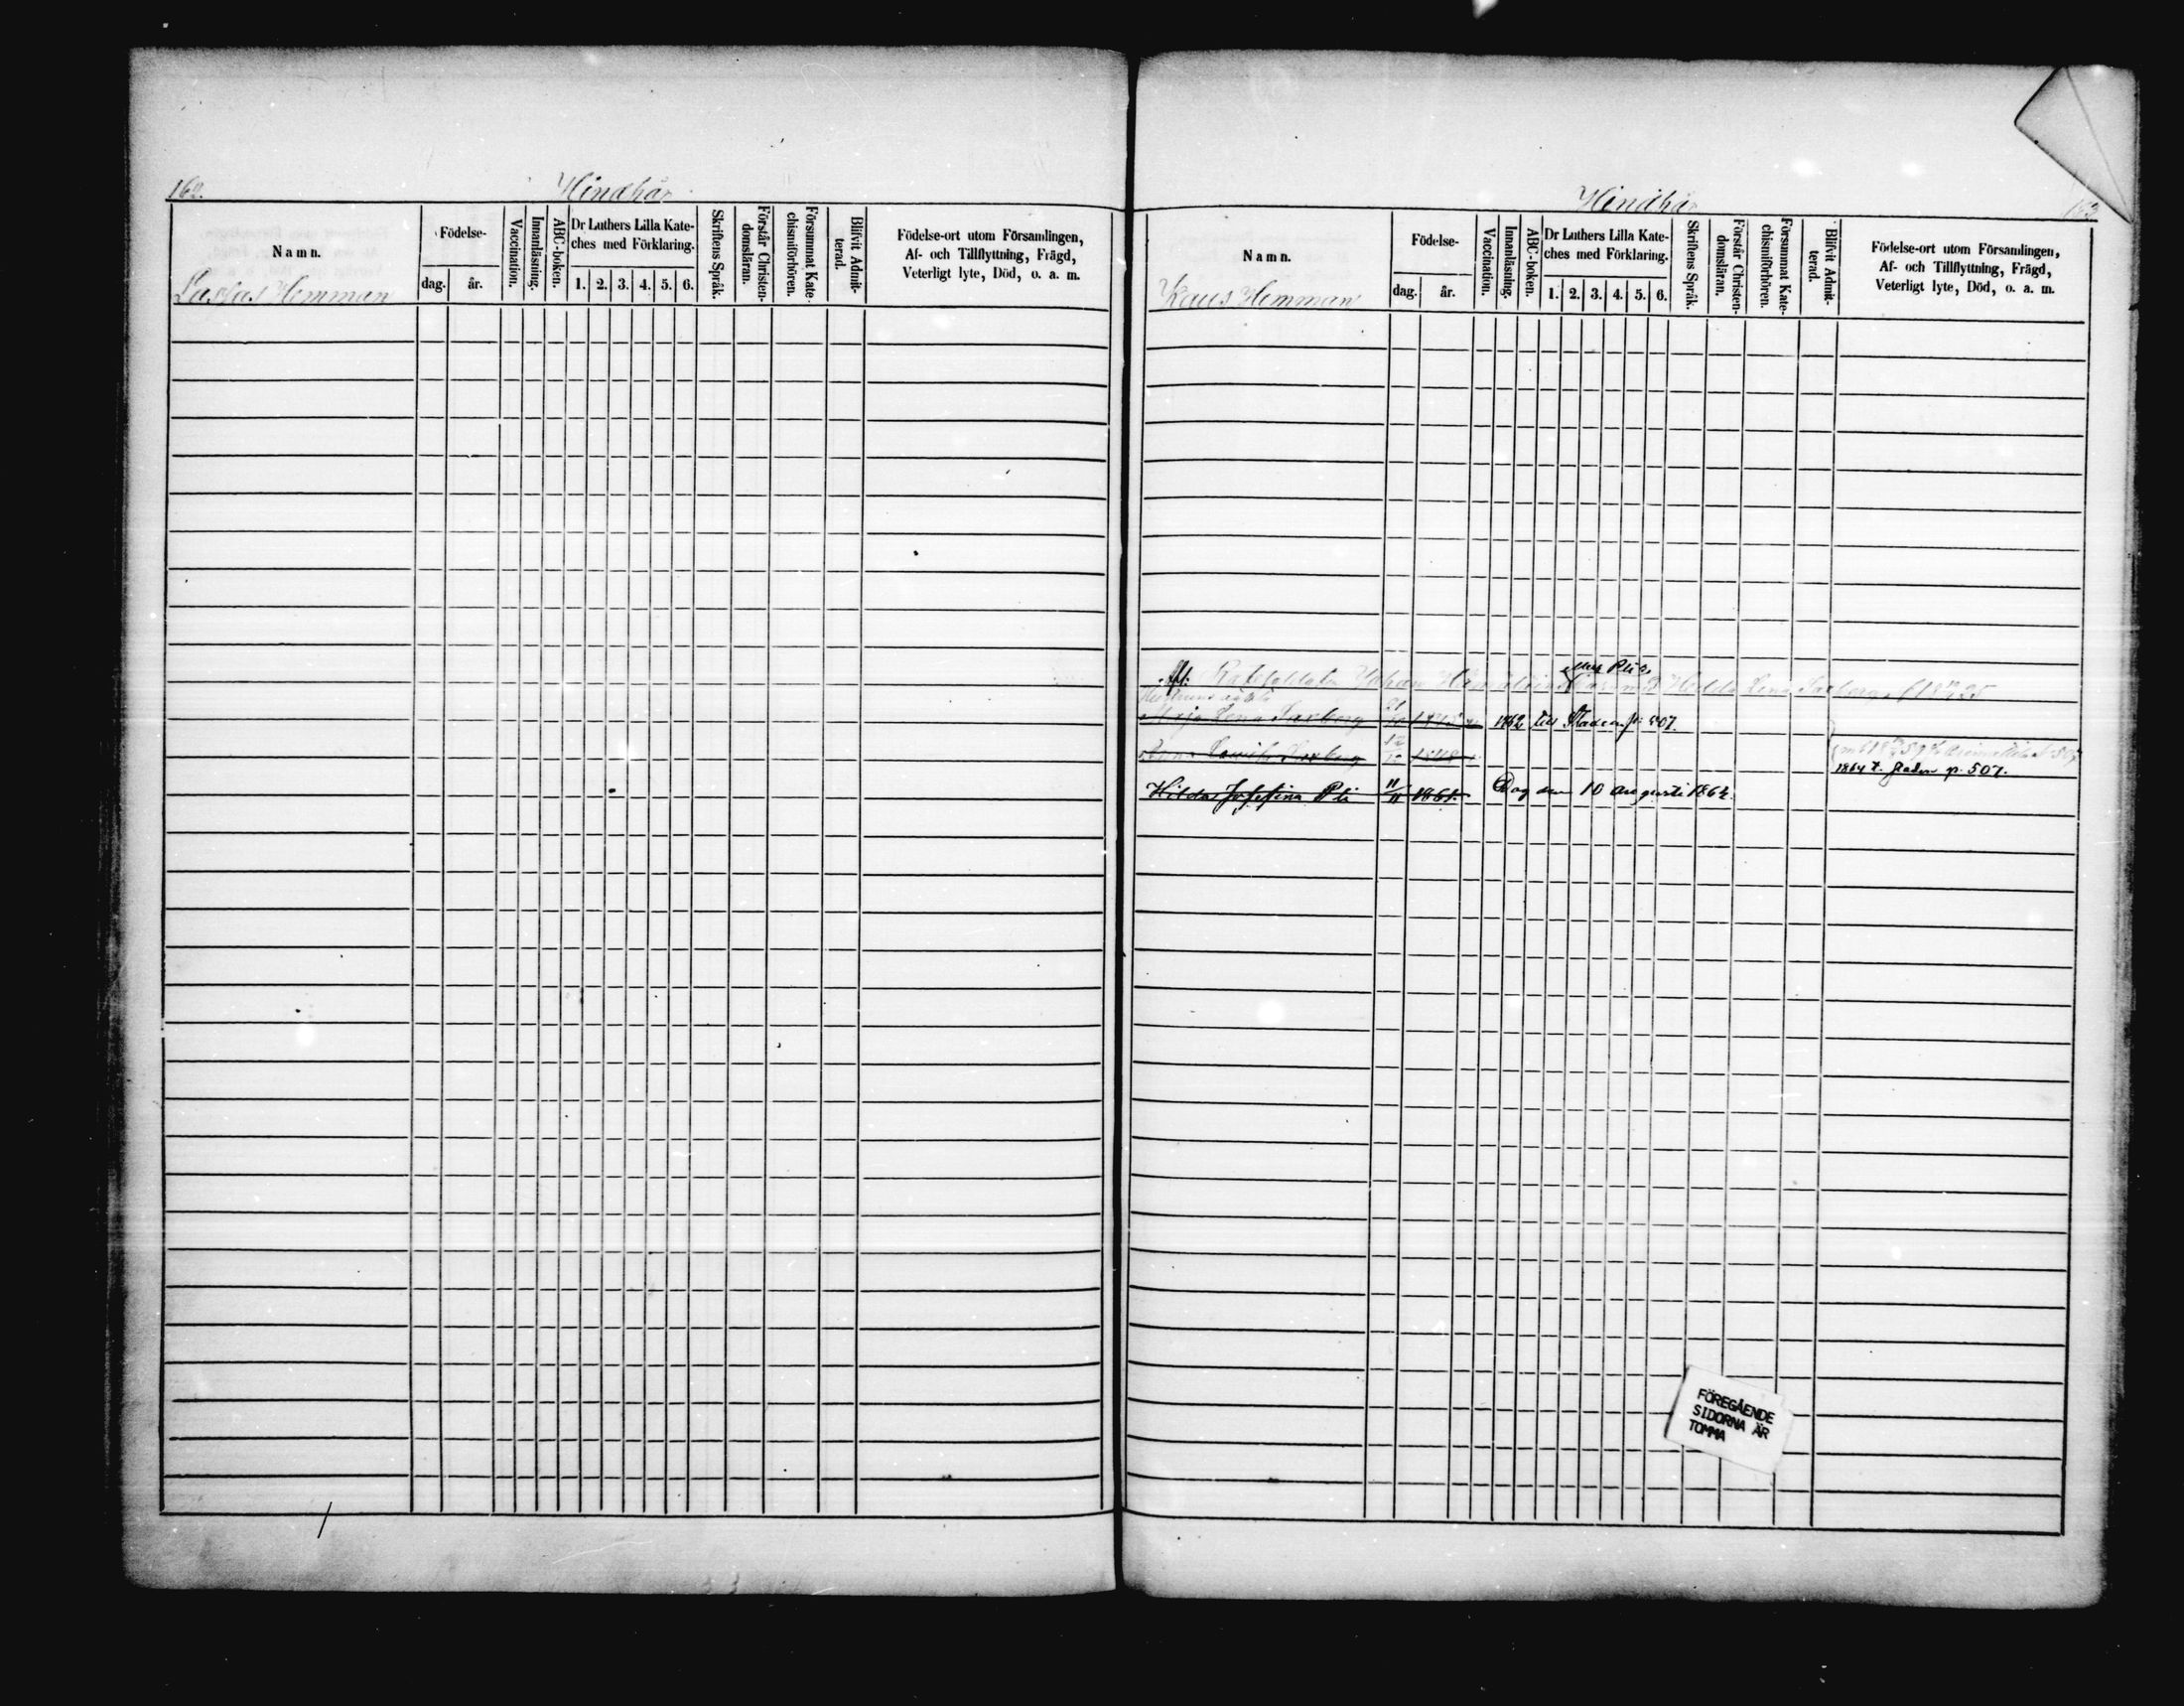 162.
Hindhår
Namn.
Lassas Hemman
Födelse-
dag. år.
Vaccination.
Innanläsning.
ABC-boken.
Dr Luthers Lilla Kate-
ches med Förklaring.
1. 2. 3. 4. 5. 6.
Skriftens Språk.
Förstår Christen-
domsläran.
Försummat Kate-
chismiförhören.
Blifvit Admit-
terad.
Födelse-ort utom Församlingen,
Af- och Tillflyttning, Frägd,
Veterligt lyte, Död, o. a. m.
Hindhår
163
Namn.
Hemman
Födelse-
dag. år.
Vaccination.
Innanläsning.
ABC-boken.
Dr Luthers Lilla Kate-
ches med Förklaring.
1. 2. 3. 4. 5. 6.
Skriftens Språk.
Förstår Christen-
domsläran.
Försummat Kate-
chismiförhören.
Blifvit Admit-
terad.
Födelse-ort utom Församlingen,
Af- och Tillflyttning, Frägd,
Veterligt lyte, Död, o. a. m.
Johan Lena
Lena Saxberg 1862 till Staden p. 507.
Saxberg
1864 t. Staden p. 507.
Hilda Josefina Pli 11/11 1861. Dog den 10 augusti 1862.
FÖREGÅENDE
SIDORNA ÄR
TOMMA